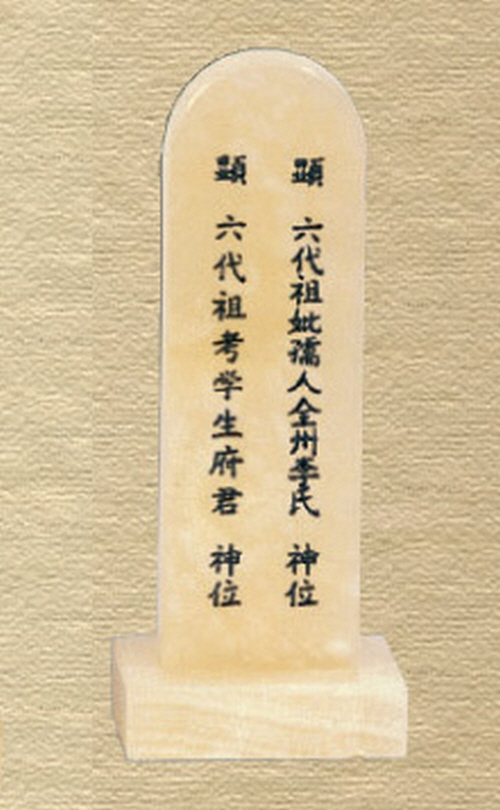 顯 六代祖妣孺人全州李氏 神位
顯 六代祖考学生府君 神位